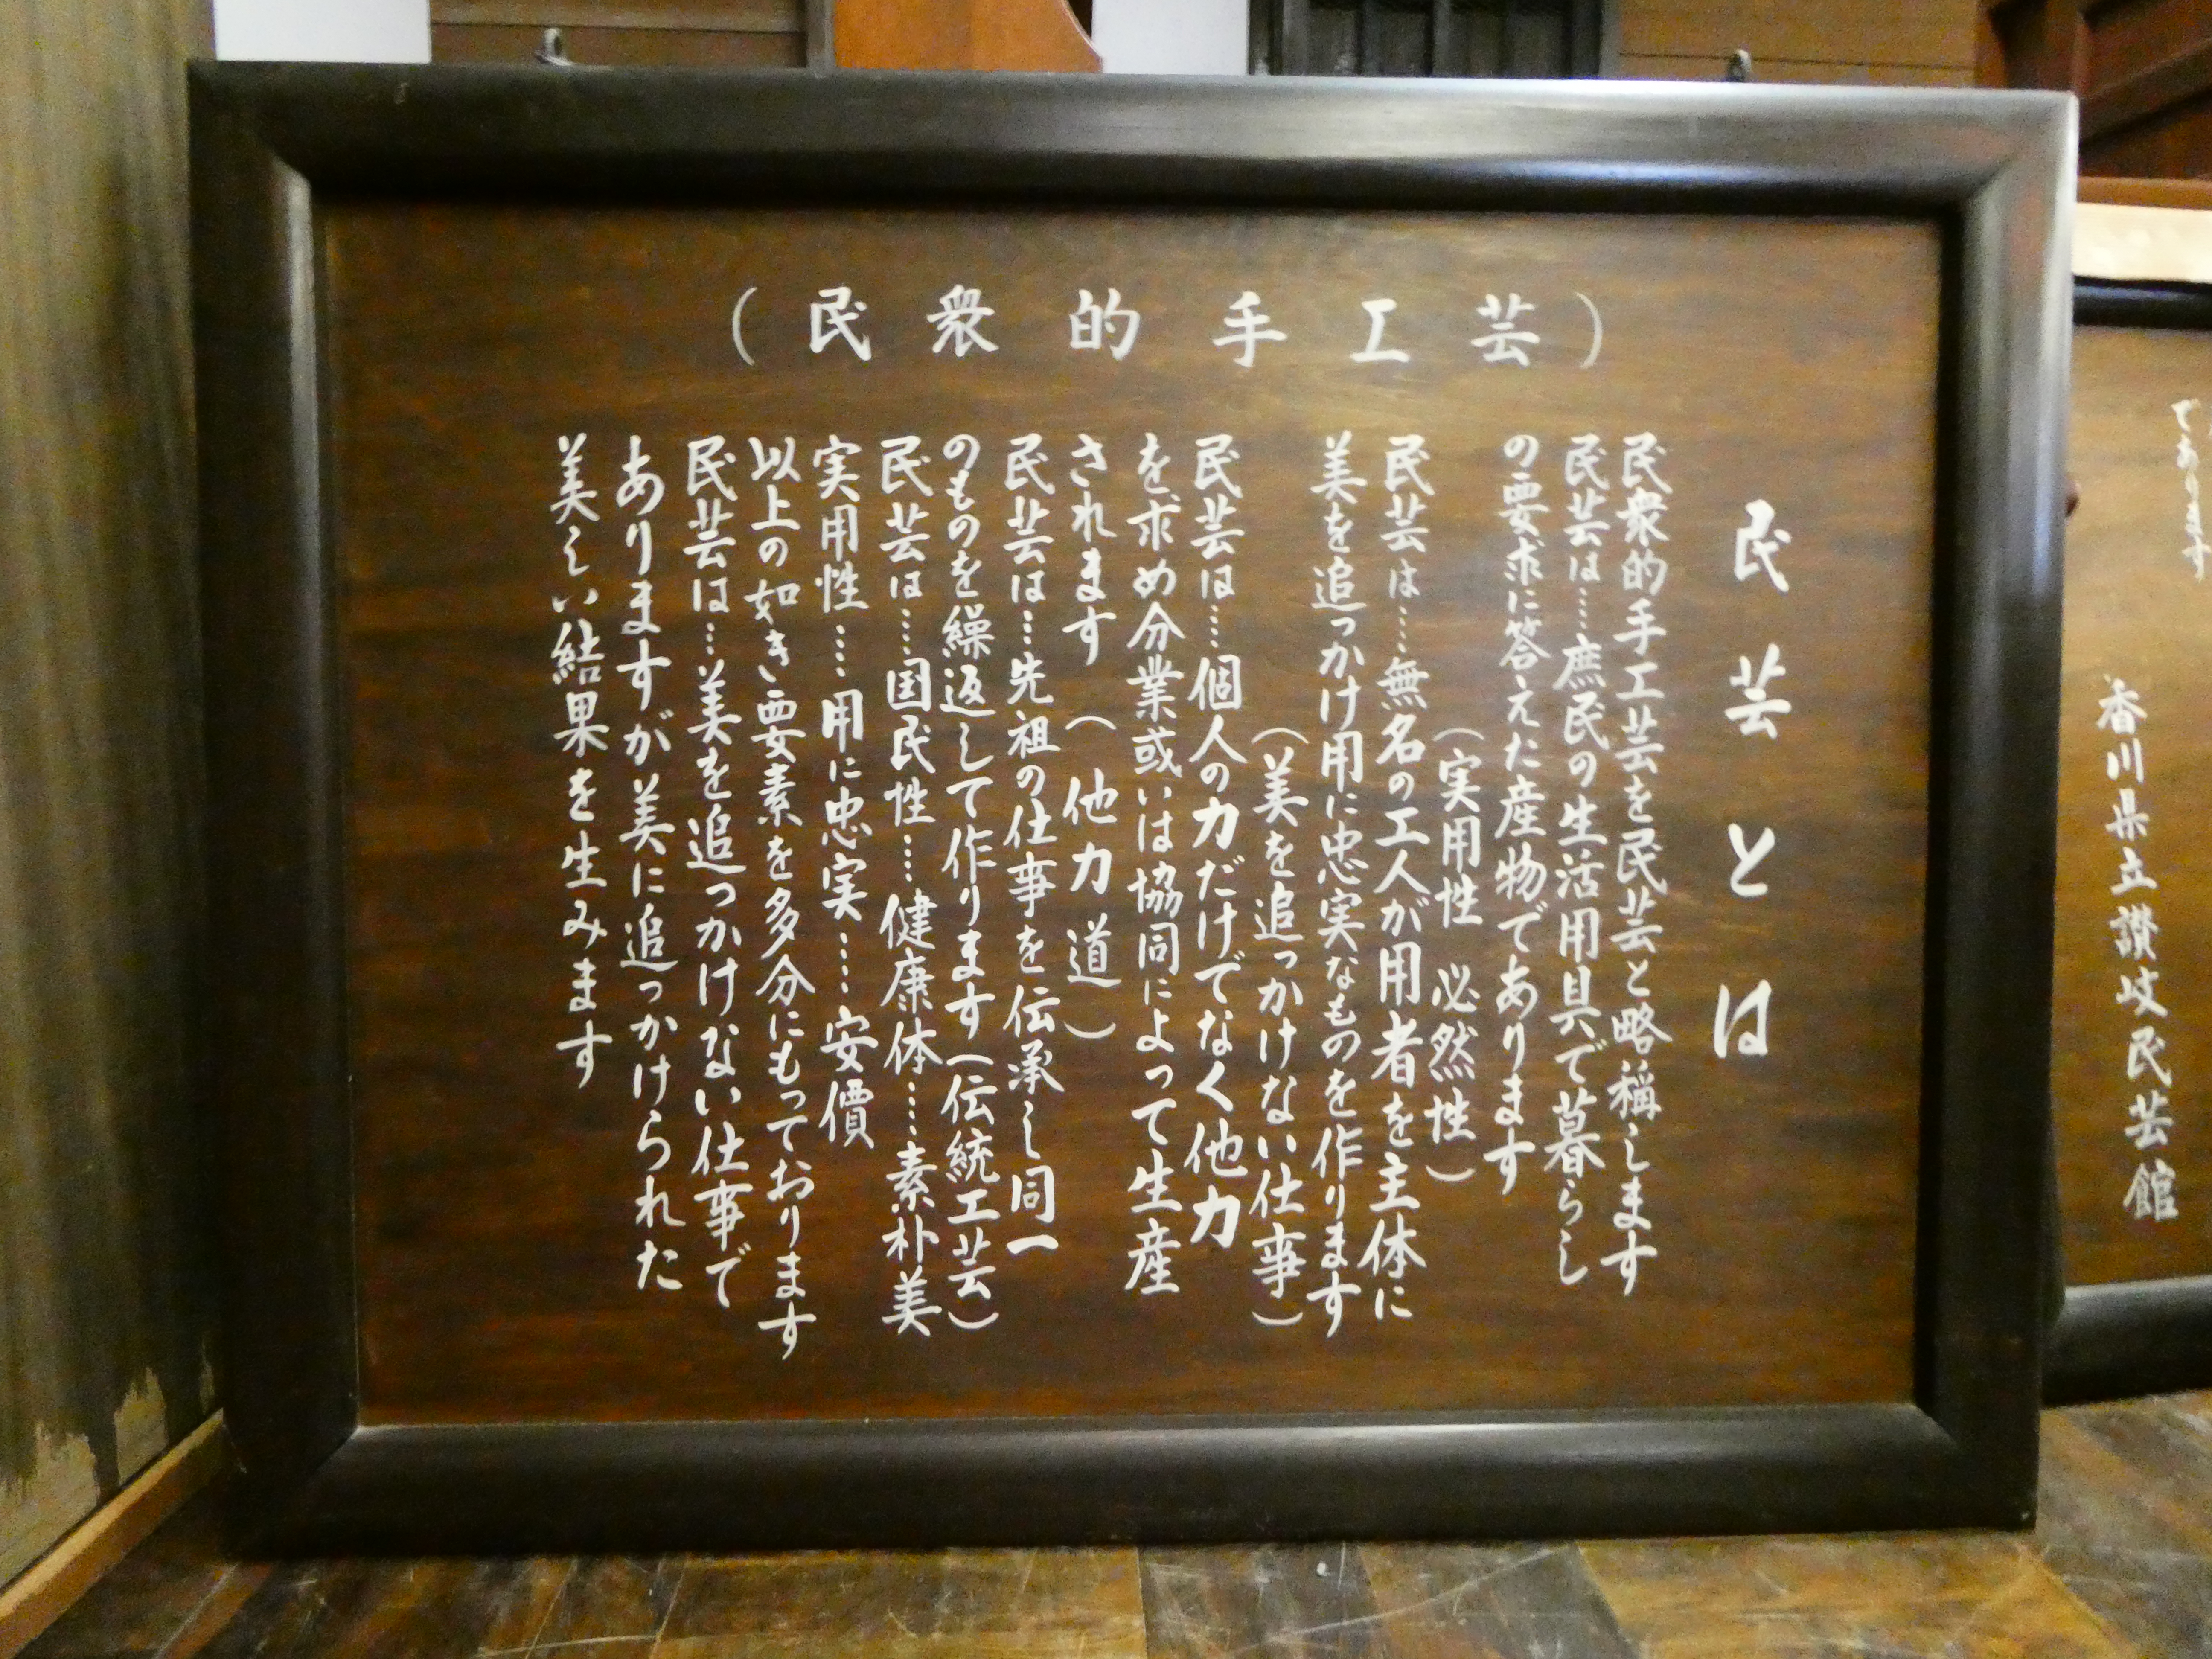 （民衆的手工芸）
民芸とは
民衆的手工芸を民芸と略稱します
民芸は……庶民の生活用具で暮らし
の要求に答えた産物であります
（実用性　必然性）
民芸は……無名の工人が用者を主体に
美を追っかけ用に忠実なものを作ります
（美を追っかけない仕事）
民芸は……個人の力だけでなく他力
を求め分業或いは協同によって生産
されます　（他力道）
民芸は……先祖の仕事を伝承し同一
のものを繰返して作ります（伝統工芸）
民芸は……国民性……健康体……素朴美
実用性……用に忠実……安價
以上の如き要素を多分にもっております
民芸は……美を追っかけない仕事で
ありますが美に追っかけられた
美しい結果を生みます
であります
香川県立讃岐民芸館